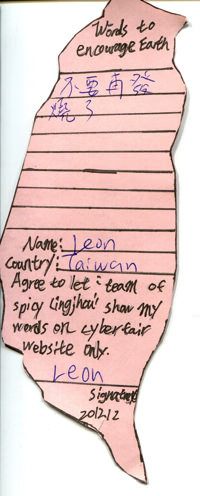 Words to
encourage Earth
不要再發
燒了
Name: Leon
Country: Taiwan
Agree to let team of
spicy lingjhou show my
words on cyberfair
website only.
Leon
signature
2012.12